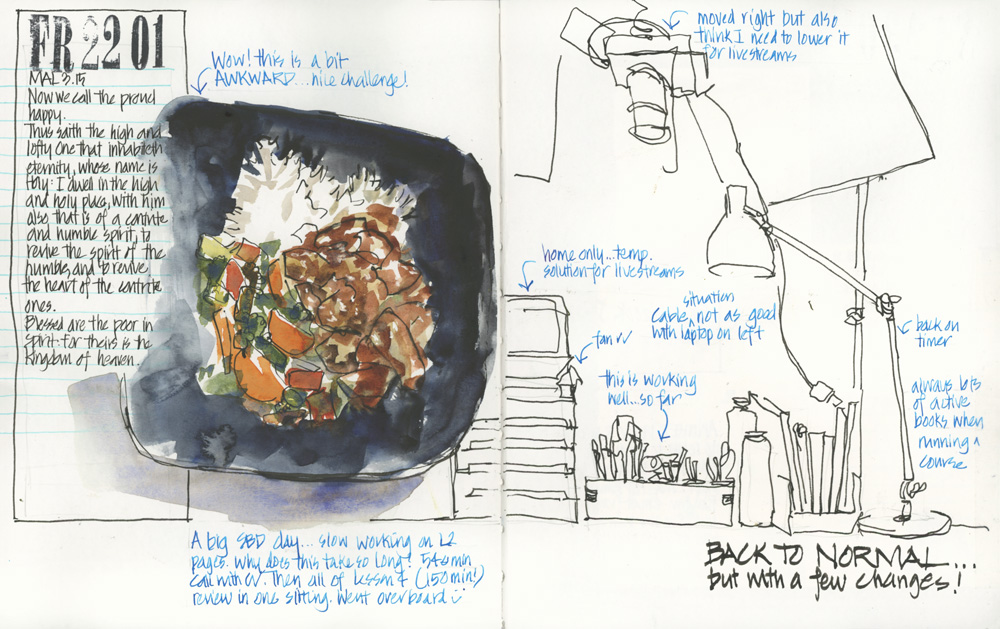 FR 22 01
MAL 3.15
Now we call the proud
happy.
Thus saith the high and
lofty One that inhabiteth
eternity, whose name is
Holy: I dwell in the high
and holy place, with him
also that is of a contrite
and humble spirit, to
revive the spirit of the
humble, and to revive
the heart of the contrite
ones.
Blessed are the poor in
spirit: for theirs is the
kingdom of heaven.
Wow! this is a bit
AWKWARD... nice challenge!
A big SBD day... slow working on L2
pages. Why does this take so long?
call with CV. Then all of Lesson (150min!)
review in one sitting. Went overboard
moved right but also
think I need to lower it
for livestreams
home only...temp.
solution for livestreams
situation
cable, not as good
with laptop on left
fan
this is working
well...so far
back on
timer
always lots
of active
books when
running a
course
BACK TO NORMAL...
but with a few changes!